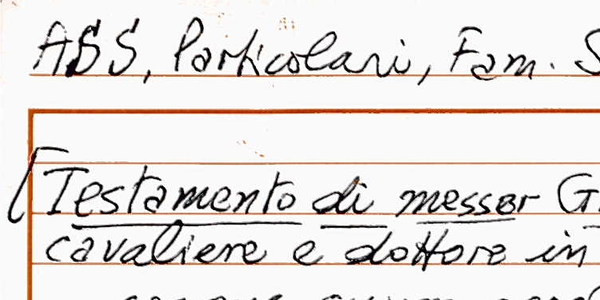 ASS, Particolari, Fam. S
[Testamento di messer G
cavaliere e dottore in